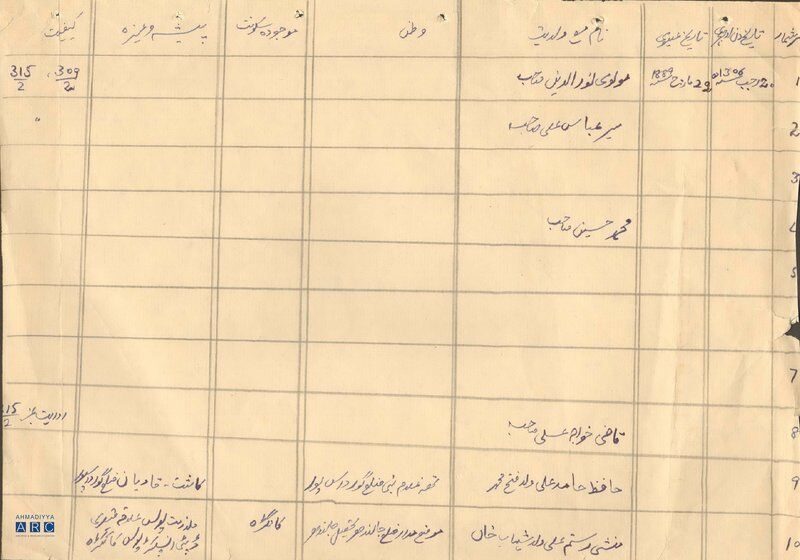 نمبر شمار تاریخ عیسوی نام مع ولدیت وطن موجودہ سکونت پیشہ وغیرہ کیفیت
1 20 رجب 1306 29 مارچ 1889 مولوی نور الدین صاحب 309/2 315/2
2 میر عباس علی صاحب "
3
4 محمد حسین صاحب
5
7
8 قاضی خواجہ علی صاحب 315/2
9 حافظ حامد علی ولد فتح محمد تھہ غلام نبی ضلع گورداسپور کاشت - قادیان ضلع گورداسپور
10 منشی رستم علی ولد شہاب خان موضع مدار ضلع جالندھر تحصیل جالندھر کانگڑہ ملازمت پولیس علاقہ
ڈپٹی انسپکٹر پولیس کانگڑہ
AHMADIYYA
ARC